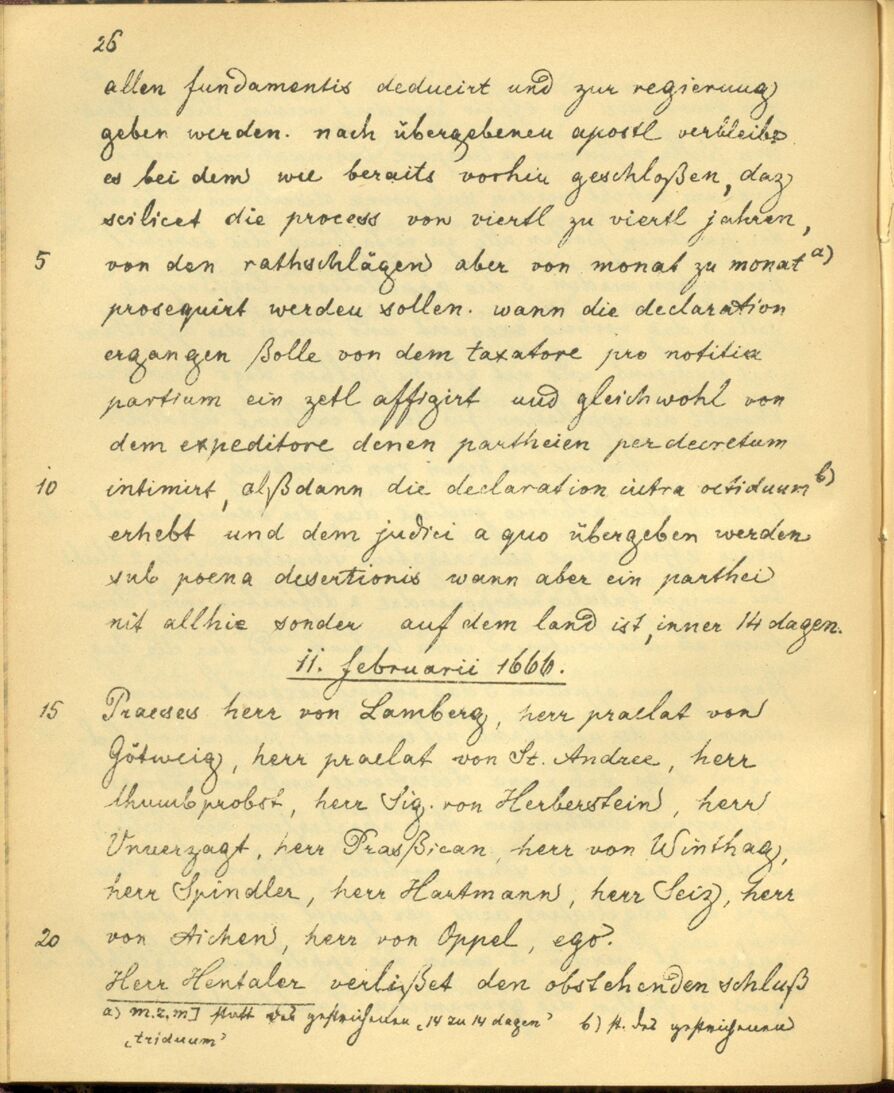 26
allen fundamentis deducirt und zur regierung
geben werden. nach übergebenen apostl verbleibe
es bei dem wie beraits vorhin geschloßen, daz
scilicet die process von viertl zu viertl jahren,
5 von den rathschlägen aber von monat zu monat a)
prosequirt werden sollen. wann die declaration
ergangen ßolle von dem taxatore pro notitia
partium ein zetl affigirt und gleichwohl von
dem expeditore denen partheien per decretum
10 intimirt, alßdann die declaration intra octiduum b)
erhebt und dem judici a quo übergeben werden
sub poena desertionis wann aber ein parthei
nit allhie sonder auf dem land ist, inner 14 dagen.
11. februarii 1666.
15 Praeses herr von Lamberg, herr praelat von
Götweig, herr praelat von St. Andree, herr
thumbprobst, herr Sig. von Herberstein, herr
Unverzagt, herr Prasßican, herr von Winthag,
herr Spindler, herr Hartmann, herr Seiz, herr
20 von Aichen, herr von Oppel, ego.
Herr Hentaler verlißet den obstehenden schluß
a) m.z.m] statt des gestrichenen „14 zu 14 dagen" b) st. des gestrichenen
„triduum"